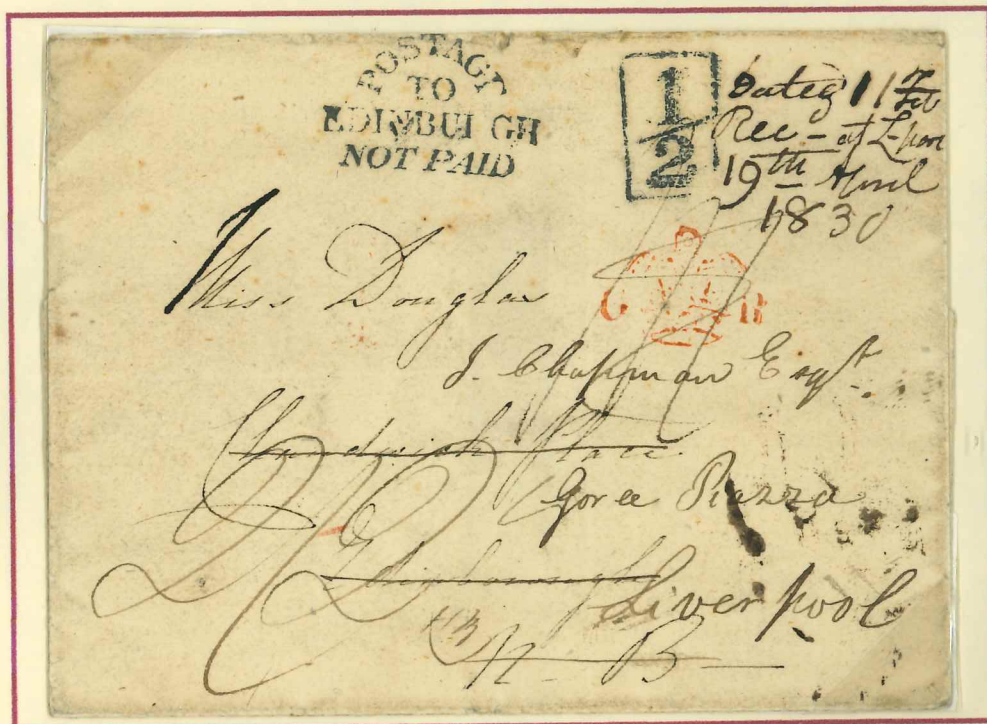 POSTAGE
TO
EDINBURGH
NOT PAID
1
2
Dated 11 Feb
Rec - at L-pool
19th April
1830
G R
Miss Douglas
J. Chapman Esqr.
Place
Goree Piazza
Edinborough
Liverpool
N. B